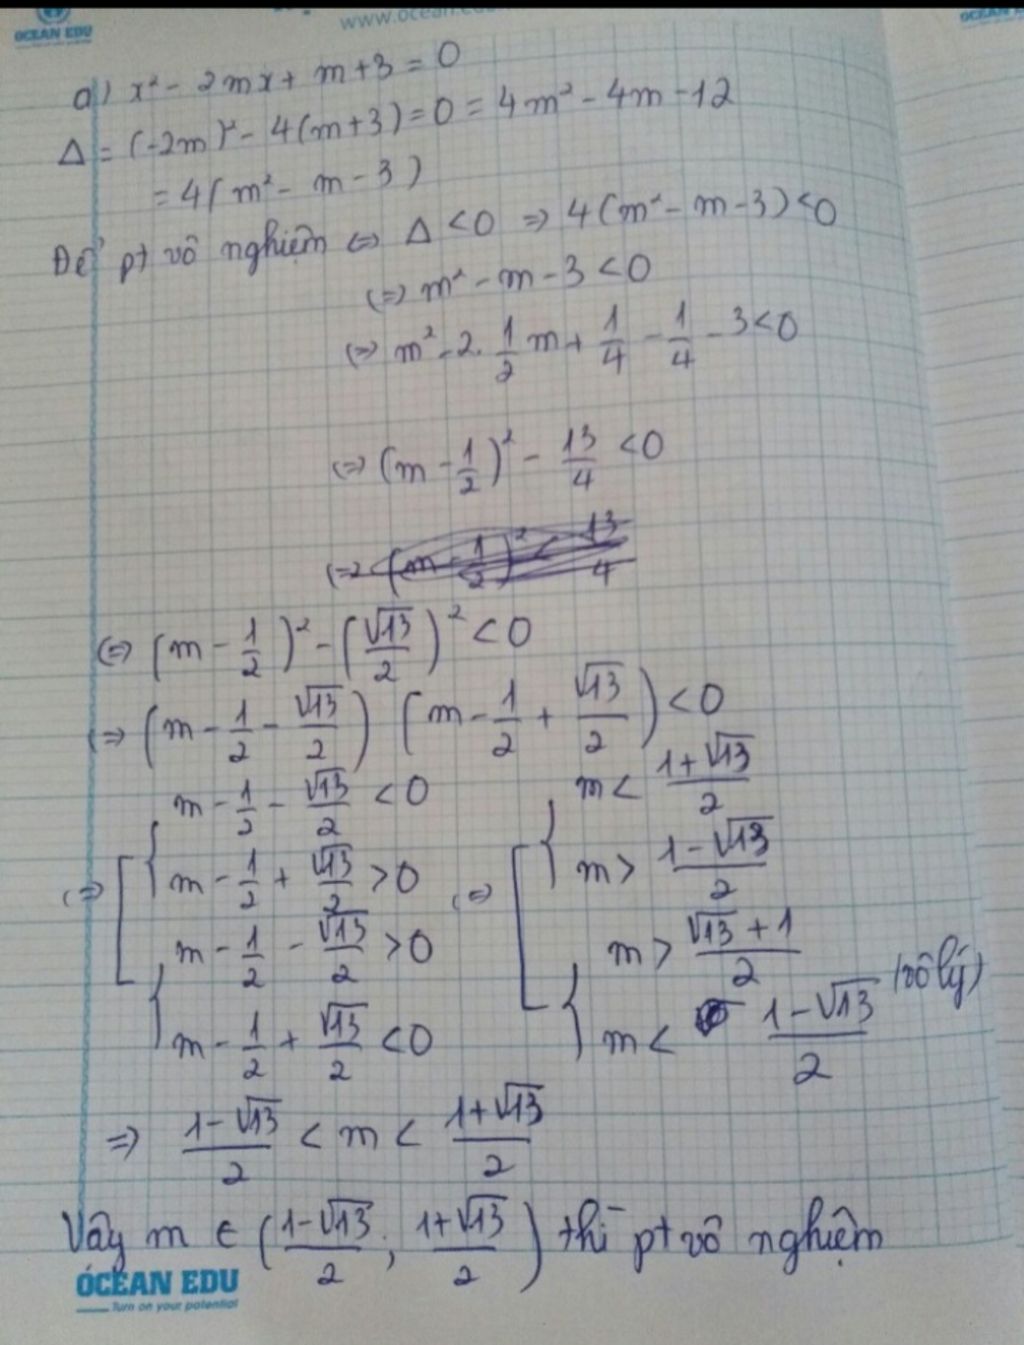 OCEAN EDU
www.ocean.edu
OCEAN
a) x² - 2mx + m+3 = 0
Δ = (-2m)² - 4(m+3) = 0 = 4m² - 4m - 12
= 4(m² - m - 3)
Để pt vô nghiệm <=> Δ < 0 => 4(m² - m - 3) < 0
<=> m² - m - 3 < 0
<=> m² - 2. 1/2 m + 1/4 - 1/4 - 3 < 0
<=> (m - 1/2)² - 13/4 < 0
<=> (m - 1/2)² < 13/4
<=> (m - 1/2)² - (√13/2)² < 0
<=> (m - 1/2 - √13/2) (m - 1/2 + √13/2) < 0
<=> [ { m - 1/2 - √13/2 < 0
m - 1/2 + √13/2 > 0
{ m - 1/2 - √13/2 > 0
m - 1/2 + √13/2 < 0
<=> [ { m < (1+√13)/2
m > (1-√13)/2
{ m > (√13+1)/2
m < (1-√13)/2 (vô lý)
=> (1-√13)/2 < m < (1+√13)/2
Vậy m ∈ ((1-√13)/2 ; (1+√13)/2) thì pt vô nghiệm
OCEAN EDU
Turn on your potential